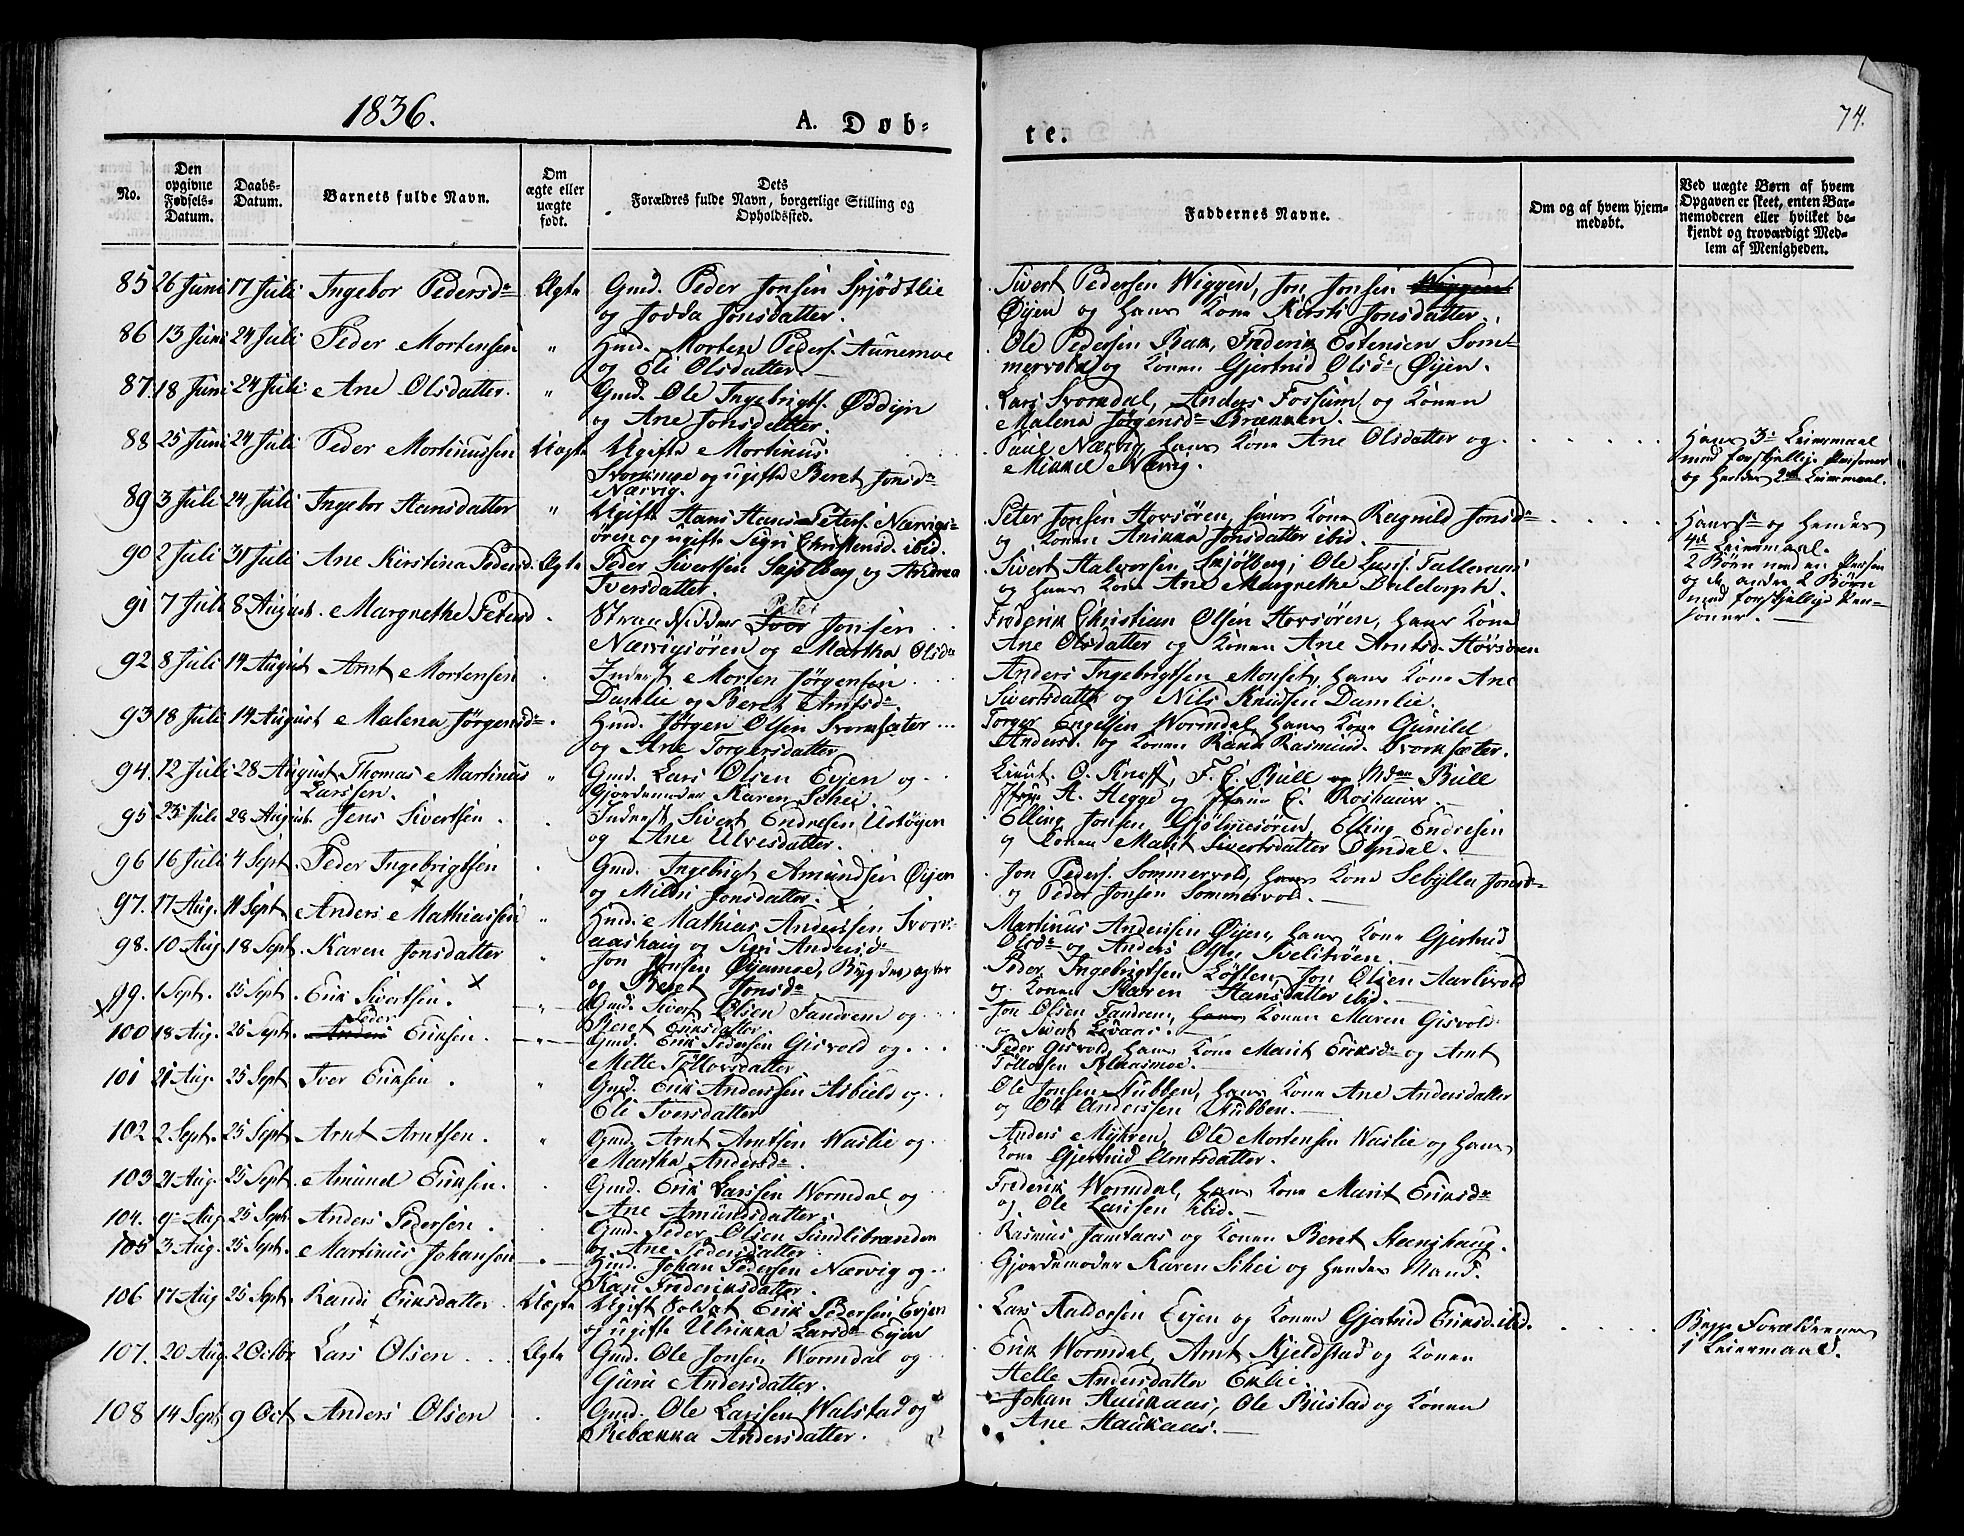 1836.
A. Døb-
te.
74.
No.
Den opgivne Fødsels-Datum.
Daabs-Datum.
Barnets fulde Navn.
Om ægte eller uægte født.
Dets
Forældres fulde Navn, borgerlige Stilling og
Opholdssted.
Faddernes Navne.
Om og af hvem hjem-
medøbt.
Ved uægte Børn af hvem
Opgaven er skeet, enten Bar-
nemoderen eller hvilket be-
kjendt og troværdigt Med-
lem af Menigheden.
85 26 Juni 17 Juli Ingebor Pedersd. Ægte Gmd. Peder Jonsen Spjødtlie Sivert Pedersen Wiggen, Jon Jonsen Wiggen
og Jodda Jonsdatter. Øijen og hans Kone Kirsti Jonsdatter.
86 13 Juni 24 Juli Peder Mortensen " Hmd. Morten Peders. Aunemoe Ole Pedersen Bak, Frederik Estensen Som-
og Eli Olsdatter mervold og Konen Gjertrud Olsd. Øijen.
87. 18 Juni 24 Juli Ane Olsdatter. " Gmd. Ole Ingebrigts. Oddijn Lars Svorndal, Anders Fossum og Konen
og Ane Jonsdatter. Malena Jørgensd. Brækken.
88 25 Juni 24 Juli Peder Mortinussen Uægte Ugifte Mortinus Paul Nærvig, hans Kone Ane Olsdatter og Hans 3. Leiermaal
Svorkmoe og ugifte Beret Jonsd. Mikkel Nærvig. med forskjellige Personer
Nærvig. og Hendes 2det Leiermaal.
89 3 Juli 24 Juli Ingebor Hansdatter " Ugifte Hans Hans Peters. Nærvigs- Peter Jonsen Hovsøren, hans Kone Ragnild Jonsd. Hans og Hendes
øren og ugifte Sigri Christensd. ibid. og Konen Anikka Jonsdatter ibid. 4de Leiermaal.
90 2 Juli 31 Juli Ane Kirstina Pedersd. Ægte Peder Sivertsen Skjølberg og Andrea Sivert Halvorsen Skjølberg, Ole Larss. 2 Børn med en Person
Iversdatter. og hans Kone Ane Margrethe og de andre 2 Børn
91 7 Juli 8 August. Margrethe Petersd. Strandsidder Ivor Peter Jonsen Frederik Christian Olsen Hovsøren, hans Kone med forskjellige Per-
Nærvigsøren og Martha Olsd. Ane Olsdatter og Konen Ane Arntsd. Hovsøren soner.
92 8 Juli 14 August Arnt Mortensen Inderst Morten Jørgensen Anders Ingebrigtsen Monset, hans Kone Ane
Damlie og Beret Arntsd. Sivertsdatter og Nils Knudsen Damlie.
93 18 Juli 14 August Malena Jørgensd. Hmd. Jørgen Olsen Svorksæter Torger Engelsen Wormdal, hans Kone Gunild
og Ane Torgersdatter Andersd. og Konen Randi Rasmusd. Svorksæter.
94. 12 Juli 28 August Thomas Martinus " Gmd. Lars Olsen Evjen og Lieut. O. Knoff, F. C. Bull og Mdm Bull
Larssen. Gjordemoder Karen Schei. Jfru A. Hegge og
95 23 Juli 28 August. Jens Sivertsen. Inderst Sivert Endresen Ustøijen Elling Jonsen Gjølmesøren, Elling Endresen
og Ane Ulvesdatter. og Konen Marit Sivertsdatter Dyndal.
96 16 Juli 4 Sept. Peder Ingebrigtsen Gmd. Ingebrigt Amundsen Øijen Jon Peders. Sommervold, hans Kone Sebylla Jonsd.
og Mildri Jonsdatter. og Peder Jonsen Sommervold.
97. 17 Aug. 11 Sept Anders Mathiassen " Hmd. Mathias Anderssen Svors- Martinus Anderssen Øijen, hans Kone Gjertrud
aashaug og Sigri Andersd. Olsd. og Anders Olsen Svelitrøen.
98. 10 Aug. 18 Sept. Karen Jonsdatter " Jon Jonsen Øijamoe, Bygdevægter Peder Ingebrigtsen Løften, Jon Olsen Aarlivold
og Beret Jonsd. og Konen Karen Hansdatter ibid.
99. 1 Sept. 25 Sept. Erik Sivertsen. " Gmd. Sivert Olsen Fandrem og Jon Olsen Fandrem, hans Konen Maren Gisvold
Beret Eriksdatter og Sivert Levaas.
100 18 Aug. 25 Sept. Anders Peder Eriksen. " Gmd. Erik Pedersen Gisvold og Peder Gisvold, hans Kone Marit Eriksd. og Arnt
Mette Tøllovsdatter Tøllofsen Klaasmoe.
101 21 Aug. 25 Sept Iver Eriksen. " Gmd. Erik Anderssen Asbield og Ole Jonsen Stubben, hans Kone Ane Andersdatter
Eli Iversdatter og Ole Anderssen Stubben.
102 2 Sept. 25 Sept Arnt Arntsen. " Gmd. Arnt Arntsen Waslie og Anders Myhren, Ole Mortensen Waslie og hans
Martha Andersd. Kone Gjertrud Arntsdatter.
103 21 Aug. 25 Sept. Amund Eriksen. Gmd. Erik Larssen Wormdal og Frederik Wormdal, hans Kone Marit Eriksd.
Ane Amundsdatter. og Ole Larssen ibid.
104. 9 Aug. 25 Sept Anders Pedersen. Gmd. Peder Olsen Sundlibranden Rasmus Jamtaas og Konen Beret Stanghaug.
og Ane Pedersdatter
105 3 Aug. 25 Sept. Martinus Johansen Hmd. Johan Pedersen Nærvig og Gjordemoder Karen Schei og hendes Mand.
Kari Frederiksdatter.
106 17 Aug 25 Sept. Randi Eriksdatter. Uægte Ugift Soldat Erik Pedersen Evjen Lars Haldorsen Evjen og Konen Gjertrud Eriksd. ibid. Begge Forældrenes
og ugifte Ulrikka Larsd. Evjen 1 Leiermaal.
107. 20 Aug. 2 Octbr Lars Olsen Ægte Gmd. Ole Jonsen Wormdal og Erik Wormdal, Arnt Kjeldstad og Konen
Guru Andersdatter. Helle Andersdatter Eklie.
108 14 Sept. 9 Oct Anders Olsen Gmd. Ole Larssen Walstad og Johan Haukaas, Ole Bustad og Konen
Rebækka Andersdatter. Ane Haukaas.